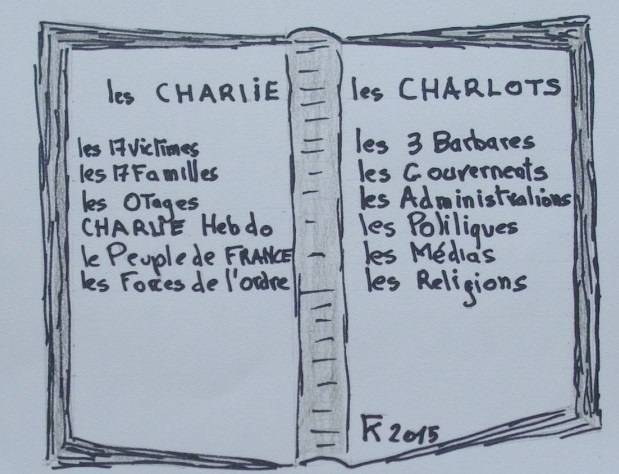 les CHARLIE
les 17 Victimes
les 17 Familles
les OTages
CHARLIE Hebdo
le Peuple de FRANCE
les Forces de l'ordre
les CHARLOTS
les 3 Barbares
les Gouvernents
les Administrations
les Politiques
les Médias
les Religions
FK 2015